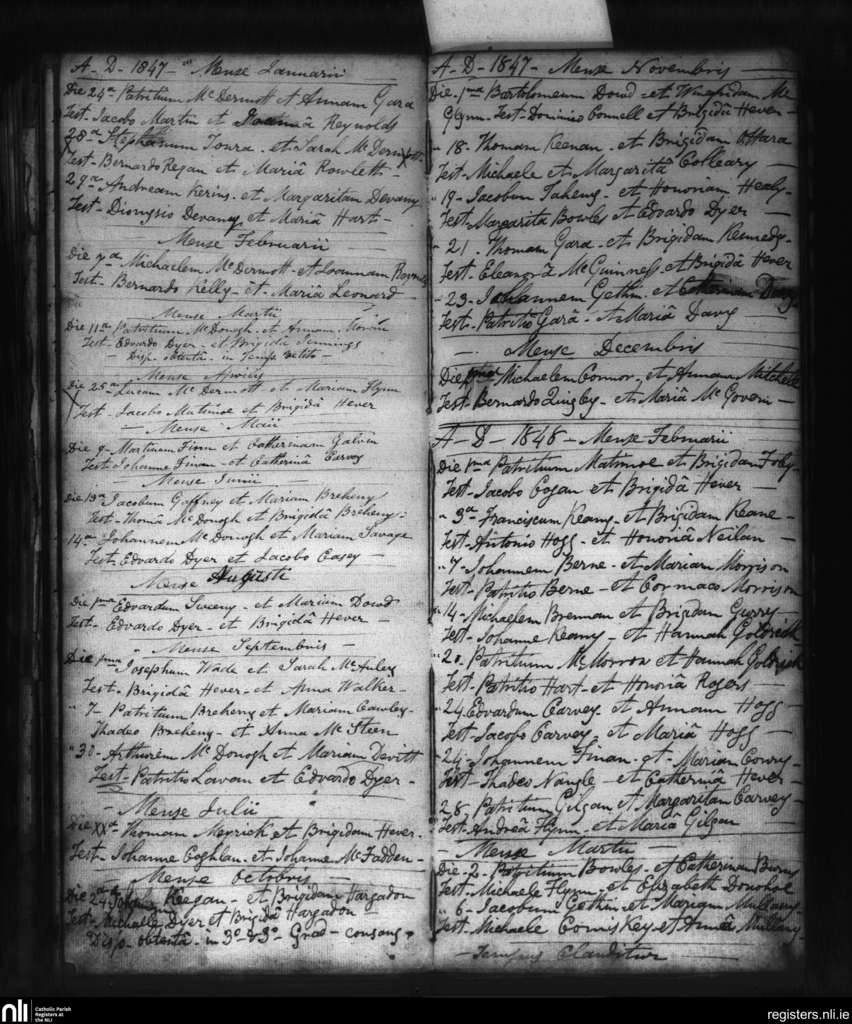 A - D - 1847 - Mense Ianuarii
Die 24a Patritium McDermott et Annam Gara
Test. Iacobo Martin et Reynolds
28a Stephanum et Sarah McDermott
Test - Bernardo Regan et Mariâ Rowlett -
29a Andream Kerins. et Margaritam Devany
Test - Dionysio Devany et Mariâ Hart -
Mense Februarii
Die 7a Michaelem McDermott - et Ioannam
Test - Bernardo Kelly - et Mariâ Leonard
Mense Martii
Die 11a Patritium McDonogh. et Annam
Test - Edvardo Dyer - et Brigidâ Jennings
- Disp. obtentâ. in Temp. vetito -
Mense Aprilis
Die 25a McDermott et Mariam Flynn
Test - Iacobo Matimoe et Brigidâ Hever
- Mense - Maii
Die 9 - Martinum Finn et Catherinam Galvin
Test. Iohanne Finan - et Catherinâ Carvey
- Mense Iunii -
Die 13a Iacobum Gaffney et Mariam Breheny
Test - Thomâ McDonogh et Brigidâ Breheny -
14a Iohannem McDonogh et Mariam Savage
Test Edvardo Dyer et Iacobo Casey -
Mense Augusti
Die 1ma Edvardum Sweeny - et Mariam Dowd
Test - Edvardo Dyer - et Brigidâ Hever -
" Mense Septembris -
Die 1ma Iosephum Wade et Sarah McAuley
Test - Brigidâ Hever - et Anna Walker -
" 7 - Patritium Breheny et Mariam Cawley -
Thadeo Breheny - et Anna McSteen
" 30 - Arthurem McDonogh et Mariam Devitt
Test - Patritio Lavan et Edvardo Dyer -
- Mense Iulii
Die XXa Thomam Meyrick et Brigidam Hever -
Test - Iohanne Coghlan - et Iohanne McFadden -
- Mense Octobris -
Die 24a Keegan - et Brigidam Hargadon
Test - Michaele Dyer et Brigidâ Hargadon
Disp - obtentâ - in 3o & 3o Grad - consang
A - D - 1847 - Mense Novembris
Die 1ma Bartholomeum Dowd - et Winefridam Mc
Glynn - Test - Dominico Connell et Brigidâ Hever -
" 18 - Thomam Keenan - et Brigidam O'Hara
Test - Michaele et Margaritâ Colleary -
" 19 - Iacobum Taheny - et Honoriam Healy -
Test Margaritâ Bowles et Edvardo Dyer -
" 21 - Thomam Gara - et Brigidam Kennedy -
Test - Eleanorâ McGuinness et Brigidâ Hever
" 23 - Iohannem Gethin. et Catherinam
Test - Patritio Garâ - et Mariâ Davy -
- Mense Decembris
Die 1ma Michaelem Connor, et Annam Mitchell
Test - Bernardo Quigley - et Mariâ McGovern -
A - D - 1848 - Mense Februarii
Die 1ma Patritium Matimoe et Brigidam Foley
Test - Iacobo Cogan et Brigidâ Hever -
" 3a Franciscum Keany - et Brigidam Keane -
Test - Antonio Hogg - et Honoriâ Neilan -
" 7 - Iohannem Berne - et Mariam Morrison
Test - Patritio Berne - et Cormaco Morrison
" 14 - Michaelem Brennan et Brigidam Curry -
Test - Iohanne Keany - et Hannah Goldrick
" 20 - Patritium McMorrow et Hannah Goldrick
Test - Patritio Hart - et Honoriâ Rogers -
" 24 Edvardum Carvey - et Annam Hogg -
Test - Iacobo Carvey - et Mariâ Hogg -
" 24 - Iohannem Finan - et - Mariam Conry -
Test - Thadeo Nangle - et Catherinâ Hever -
" 28 Patritium Gilgan et Margaritam Carvey -
Test - Andreâ Flynn - et Mariâ Gilgan
- Mense Martii -
Die - 2 - Patritium Bowles - et Catherinam Burns
Test - Michaele Flynn - et Elizabeth Donohoe
" 6 - Iacobum Gethin - et Mariam Mullany -
Test - Michaele ComisKey - et Annâ Mullany -
- Tempus Clauditur -
nli
Catholic Parish
Registers at
the NLI
registers.nli.ie